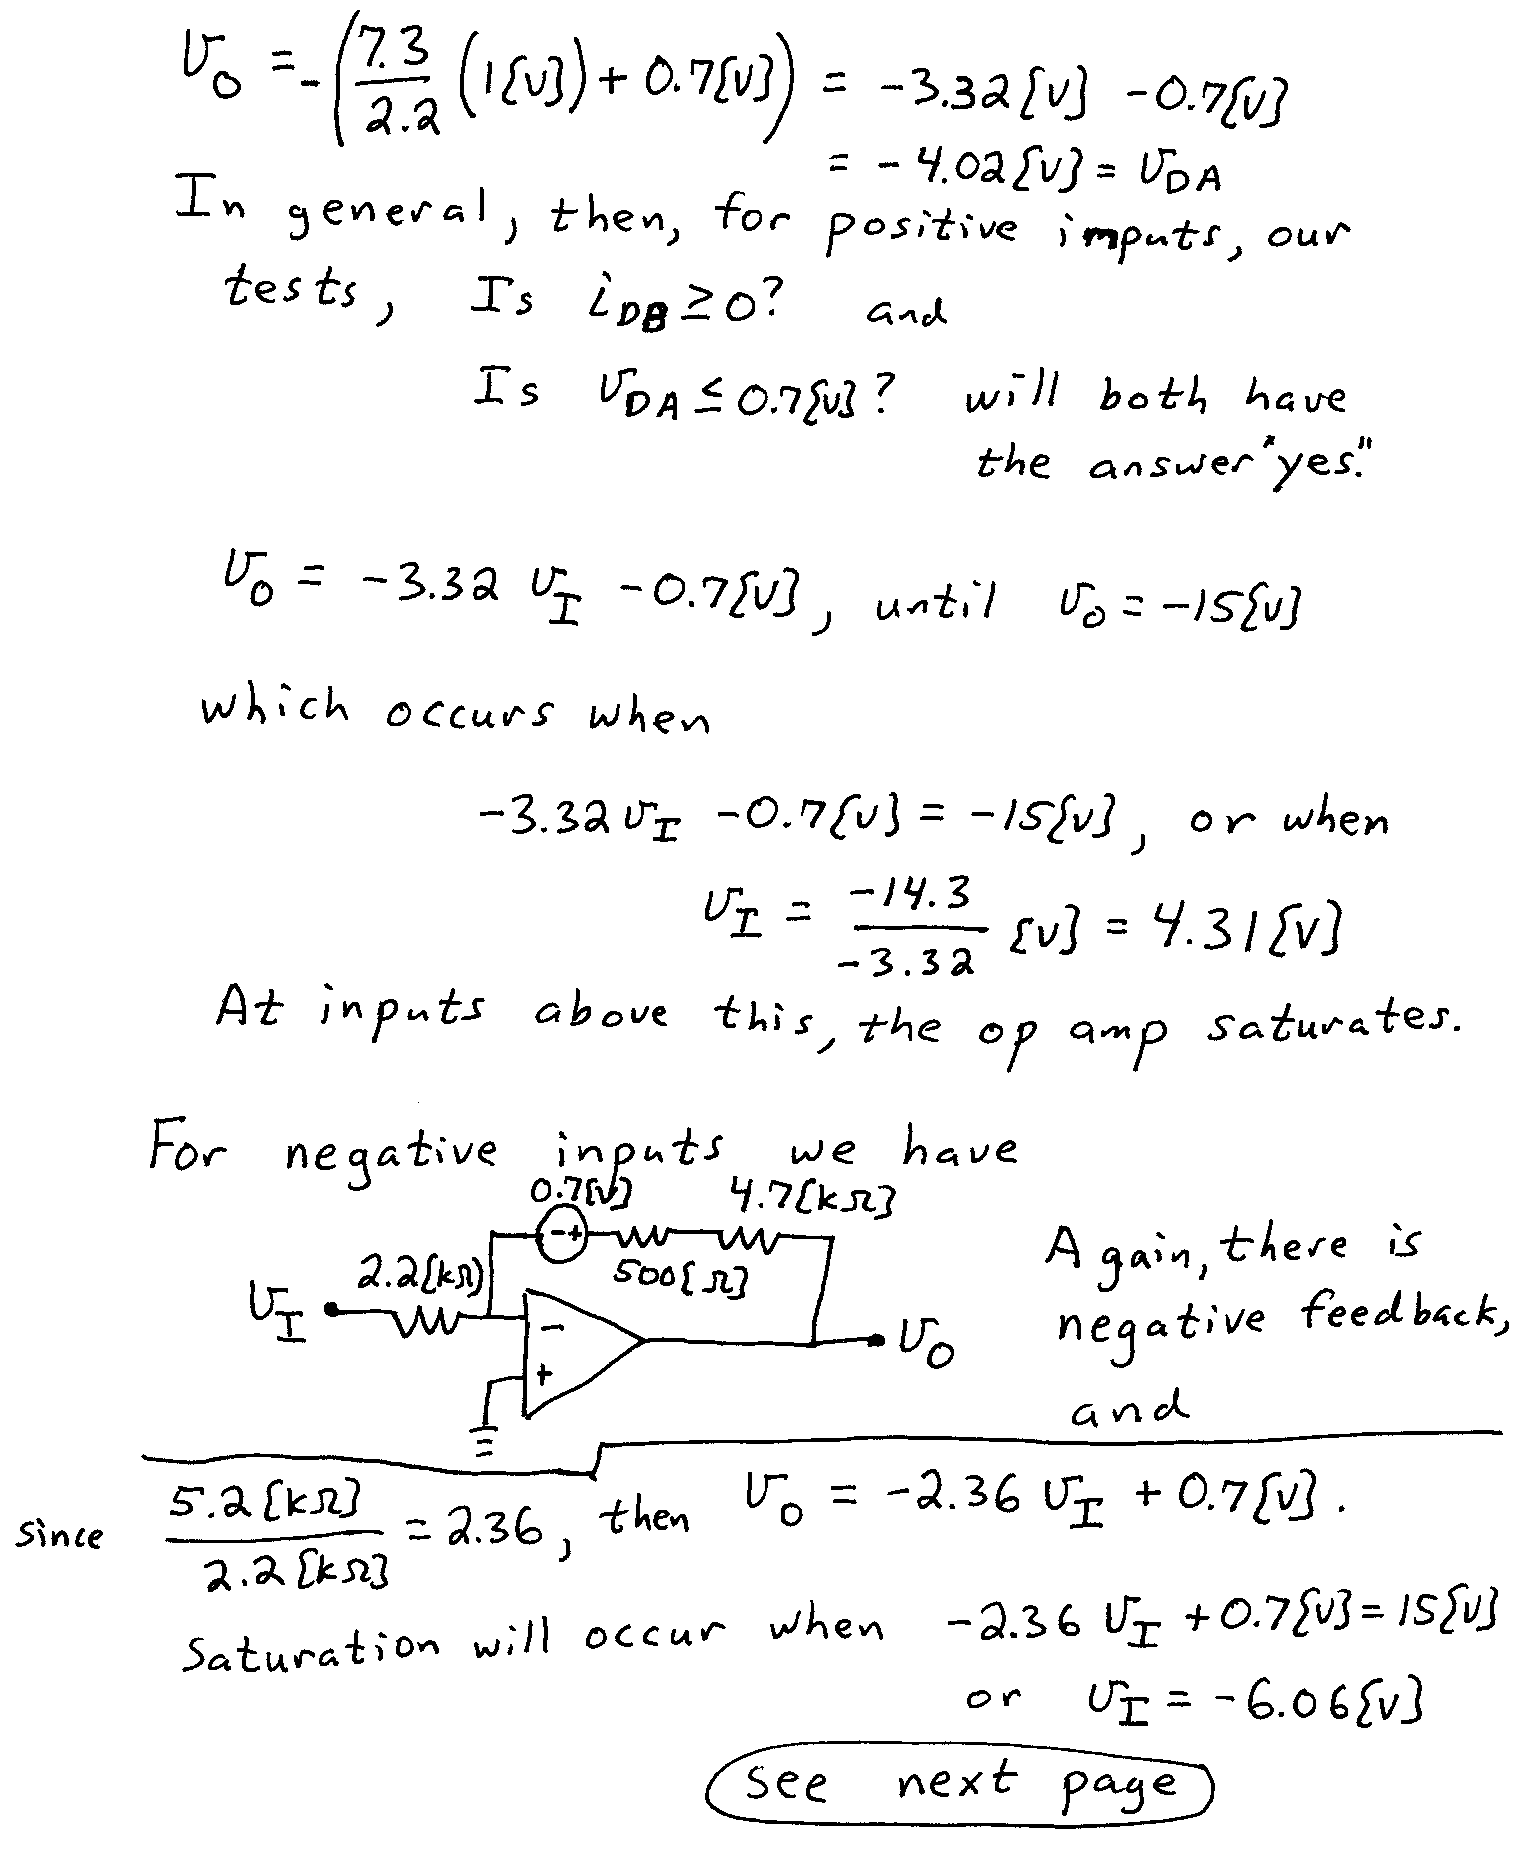 v_O = -(7.3/2.2 (1[V]) + 0.7[V]) = -3.32[V] -0.7[V]
= -4.02[V] = v_DA
In general, then, for positive imputs, our
tests, Is i_DB ≥ 0? and
Is v_DA ≤ 0.7[V]? will both have
the answer "yes."
v_O = -3.32 v_I -0.7[V], until v_O = -15[V]
which occurs when
-3.32 v_I -0.7[V] = -15[V], or when
v_I = -14.3/-3.32 [V] = 4.31[V]
At inputs above this, the op amp saturates.
For negative inputs we have
0.7[V] 4.7[kΩ]
- +
2.2[kΩ] 500[Ω]
v_I
-
+
v_O
Again, there is
negative feedback,
and
since 5.2[kΩ]/2.2[kΩ] = 2.36, then v_O = -2.36 v_I + 0.7[V].
Saturation will occur when -2.36 v_I +0.7[V] = 15[V]
or v_I = -6.06[V]
see next page